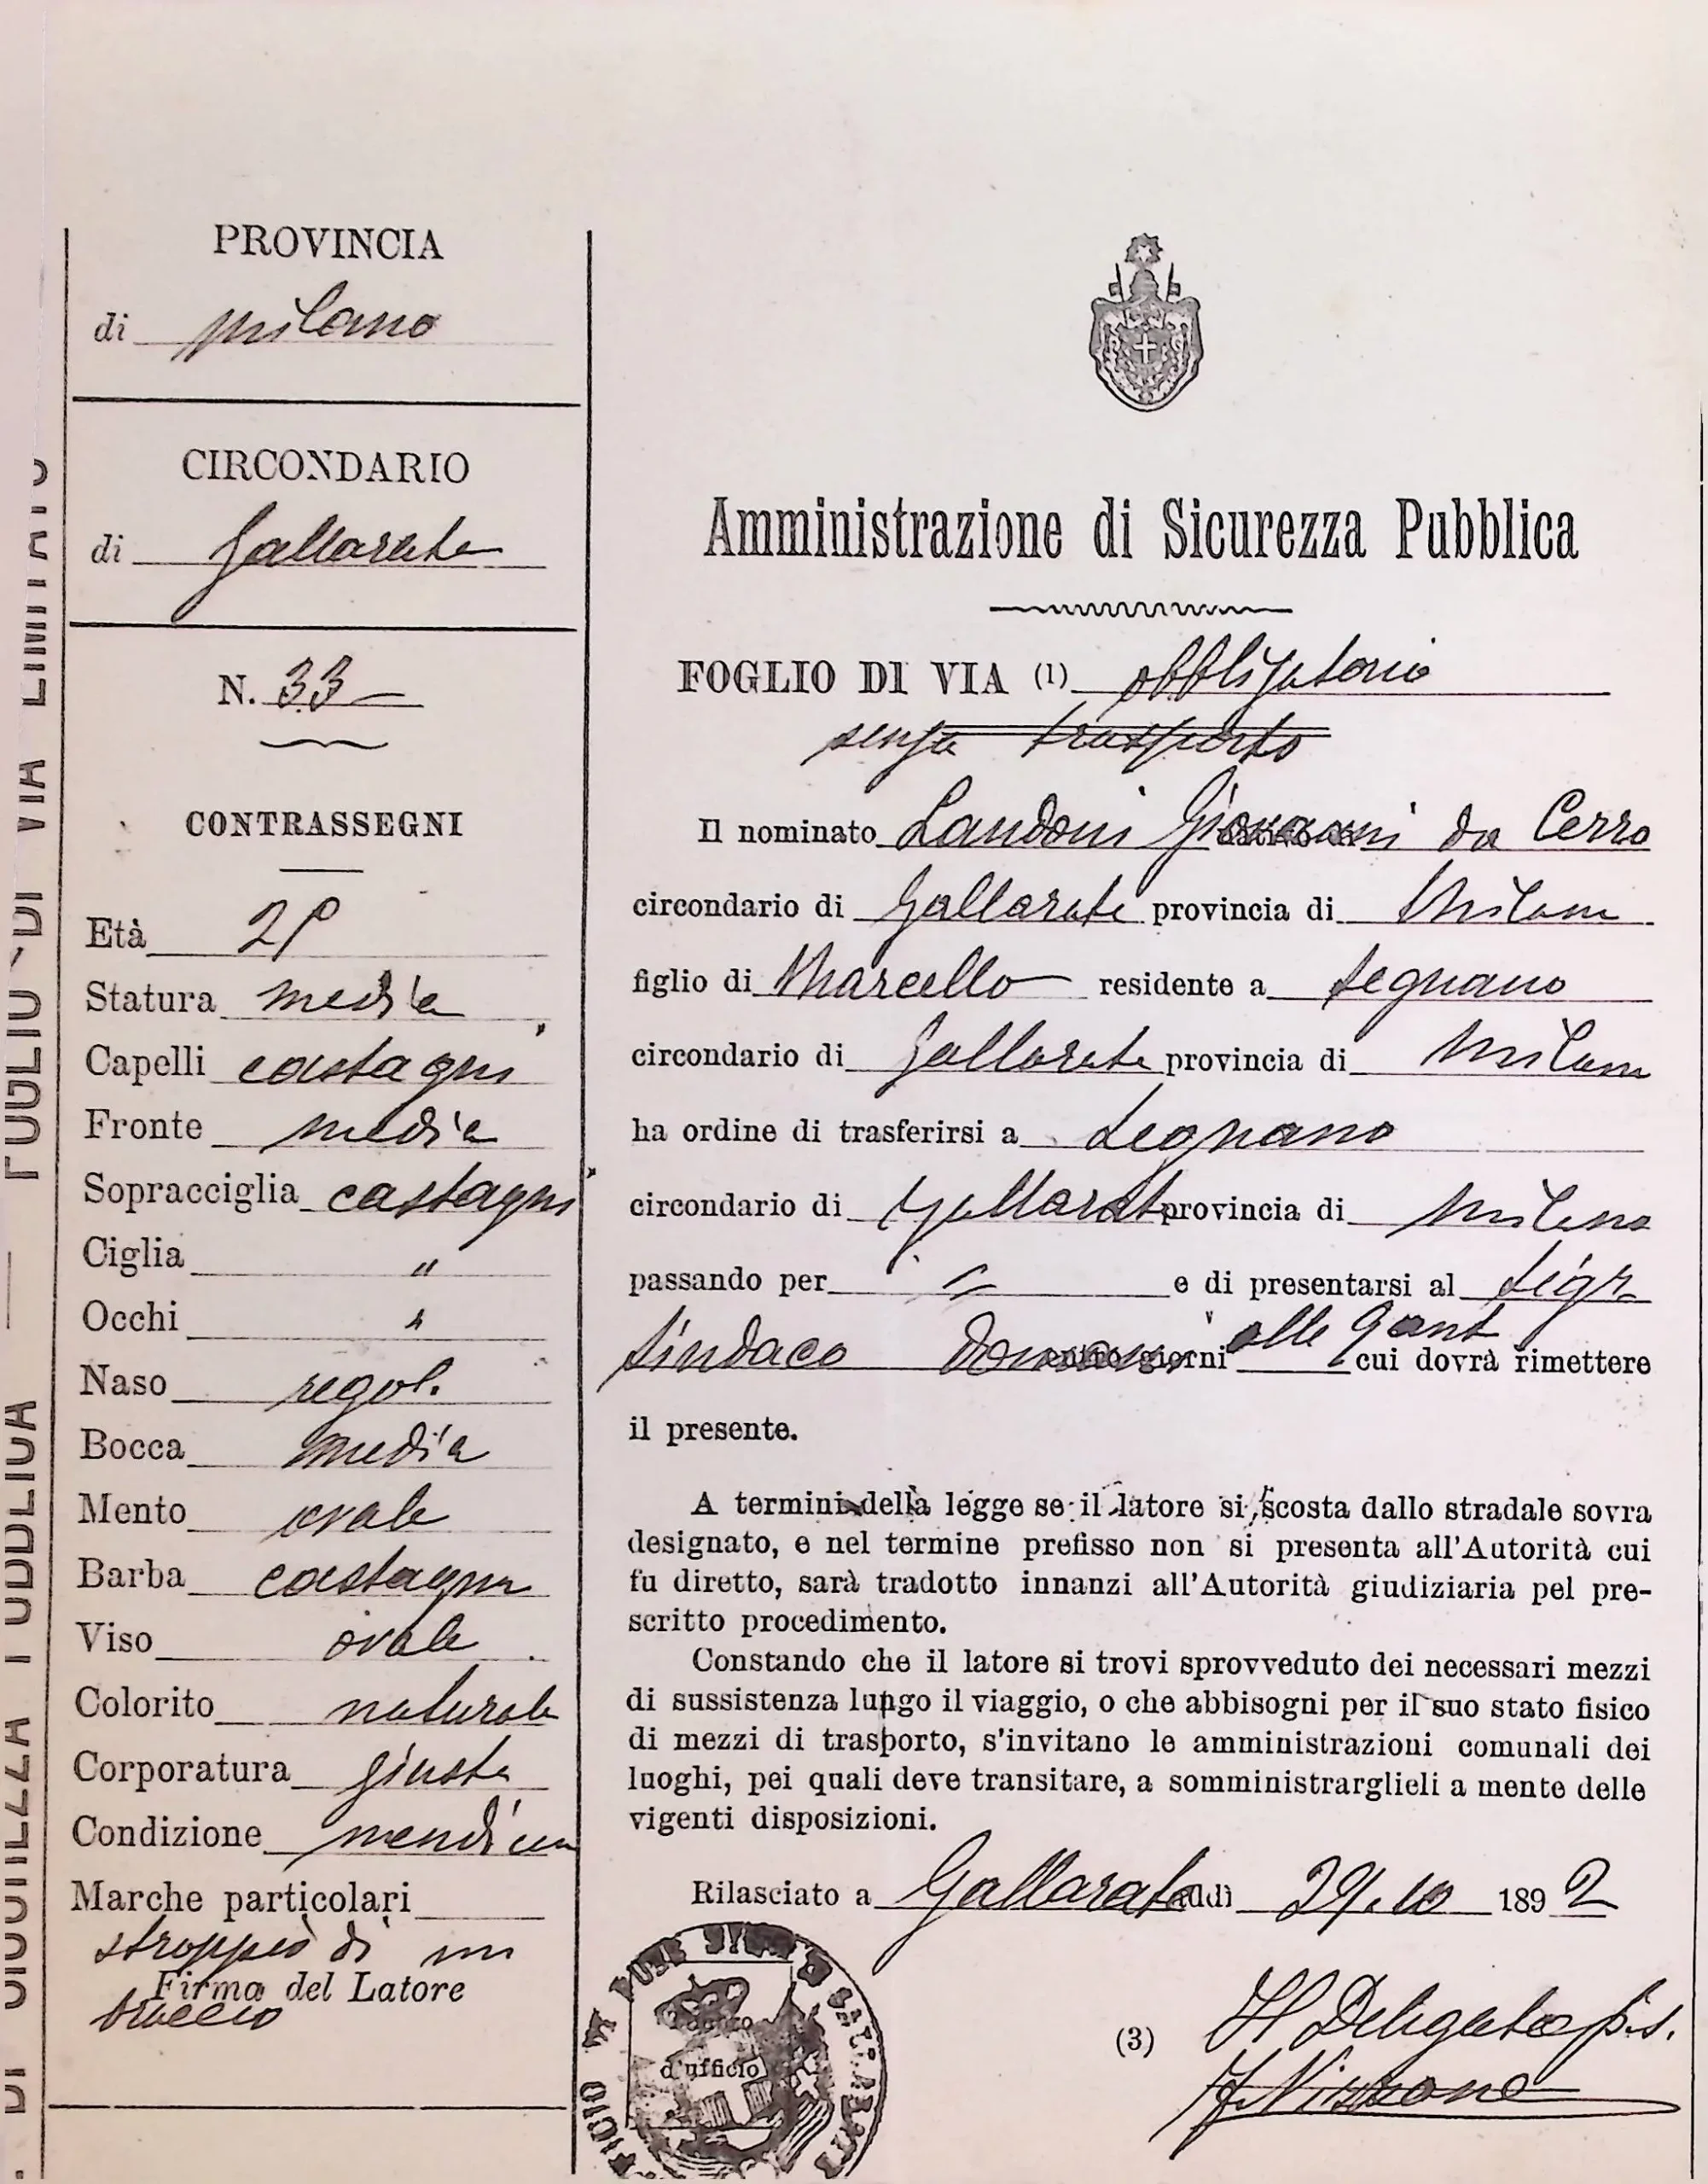 PROVINCIA
di Milano
CIRCONDARIO
di Gallarate
N. 33
CONTRASSEGNI
Età
Statura media
Capelli castagni
Fronte media
Sopracciglia castagni
Ciglia "
Occhi "
Naso regol.
Bocca media
Mento ovale
Barba castagna
Viso ovale
Colorito naturale
Corporatura giusta
Condizione
Marche particolari
stroppio di un
Firma del Latore
braccio
Amministrazione di Sicurezza Pubblica
FOGLIO DI VIA (1) obbligatorio
senza trasporto
Il nominato Landoni Giovanni da Cerro
circondario di Gallarate provincia di Milano
figlio di Marcello residente a Legnano
circondario di Gallarate provincia di Milano
ha ordine di trasferirsi a Legnano
circondario di Gallarate provincia di Milano
passando per " e di presentarsi al Sigr
Sindaco giorni alle 9 ant cui dovrà rimettere
il presente.
A termini della legge se il latore si scosta dallo stradale sovra
designato, e nel termine prefisso non si presenta all'Autorità cui
fu diretto, sarà tradotto innanzi all'Autorità giudiziaria pel pre-
scritto procedimento.
Constando che il latore si trovi sprovveduto dei necessari mezzi
di sussistenza lungo il viaggio, o che abbisogni per il suo stato fisico
di mezzi di trasporto, s'invitano le amministrazioni comunali dei
luoghi, pei quali deve transitare, a somministrarglieli a mente delle
vigenti disposizioni.
Rilasciato a Gallarate addì 29.10 1892
d'ufficio
(3) Il Delegato p.s.